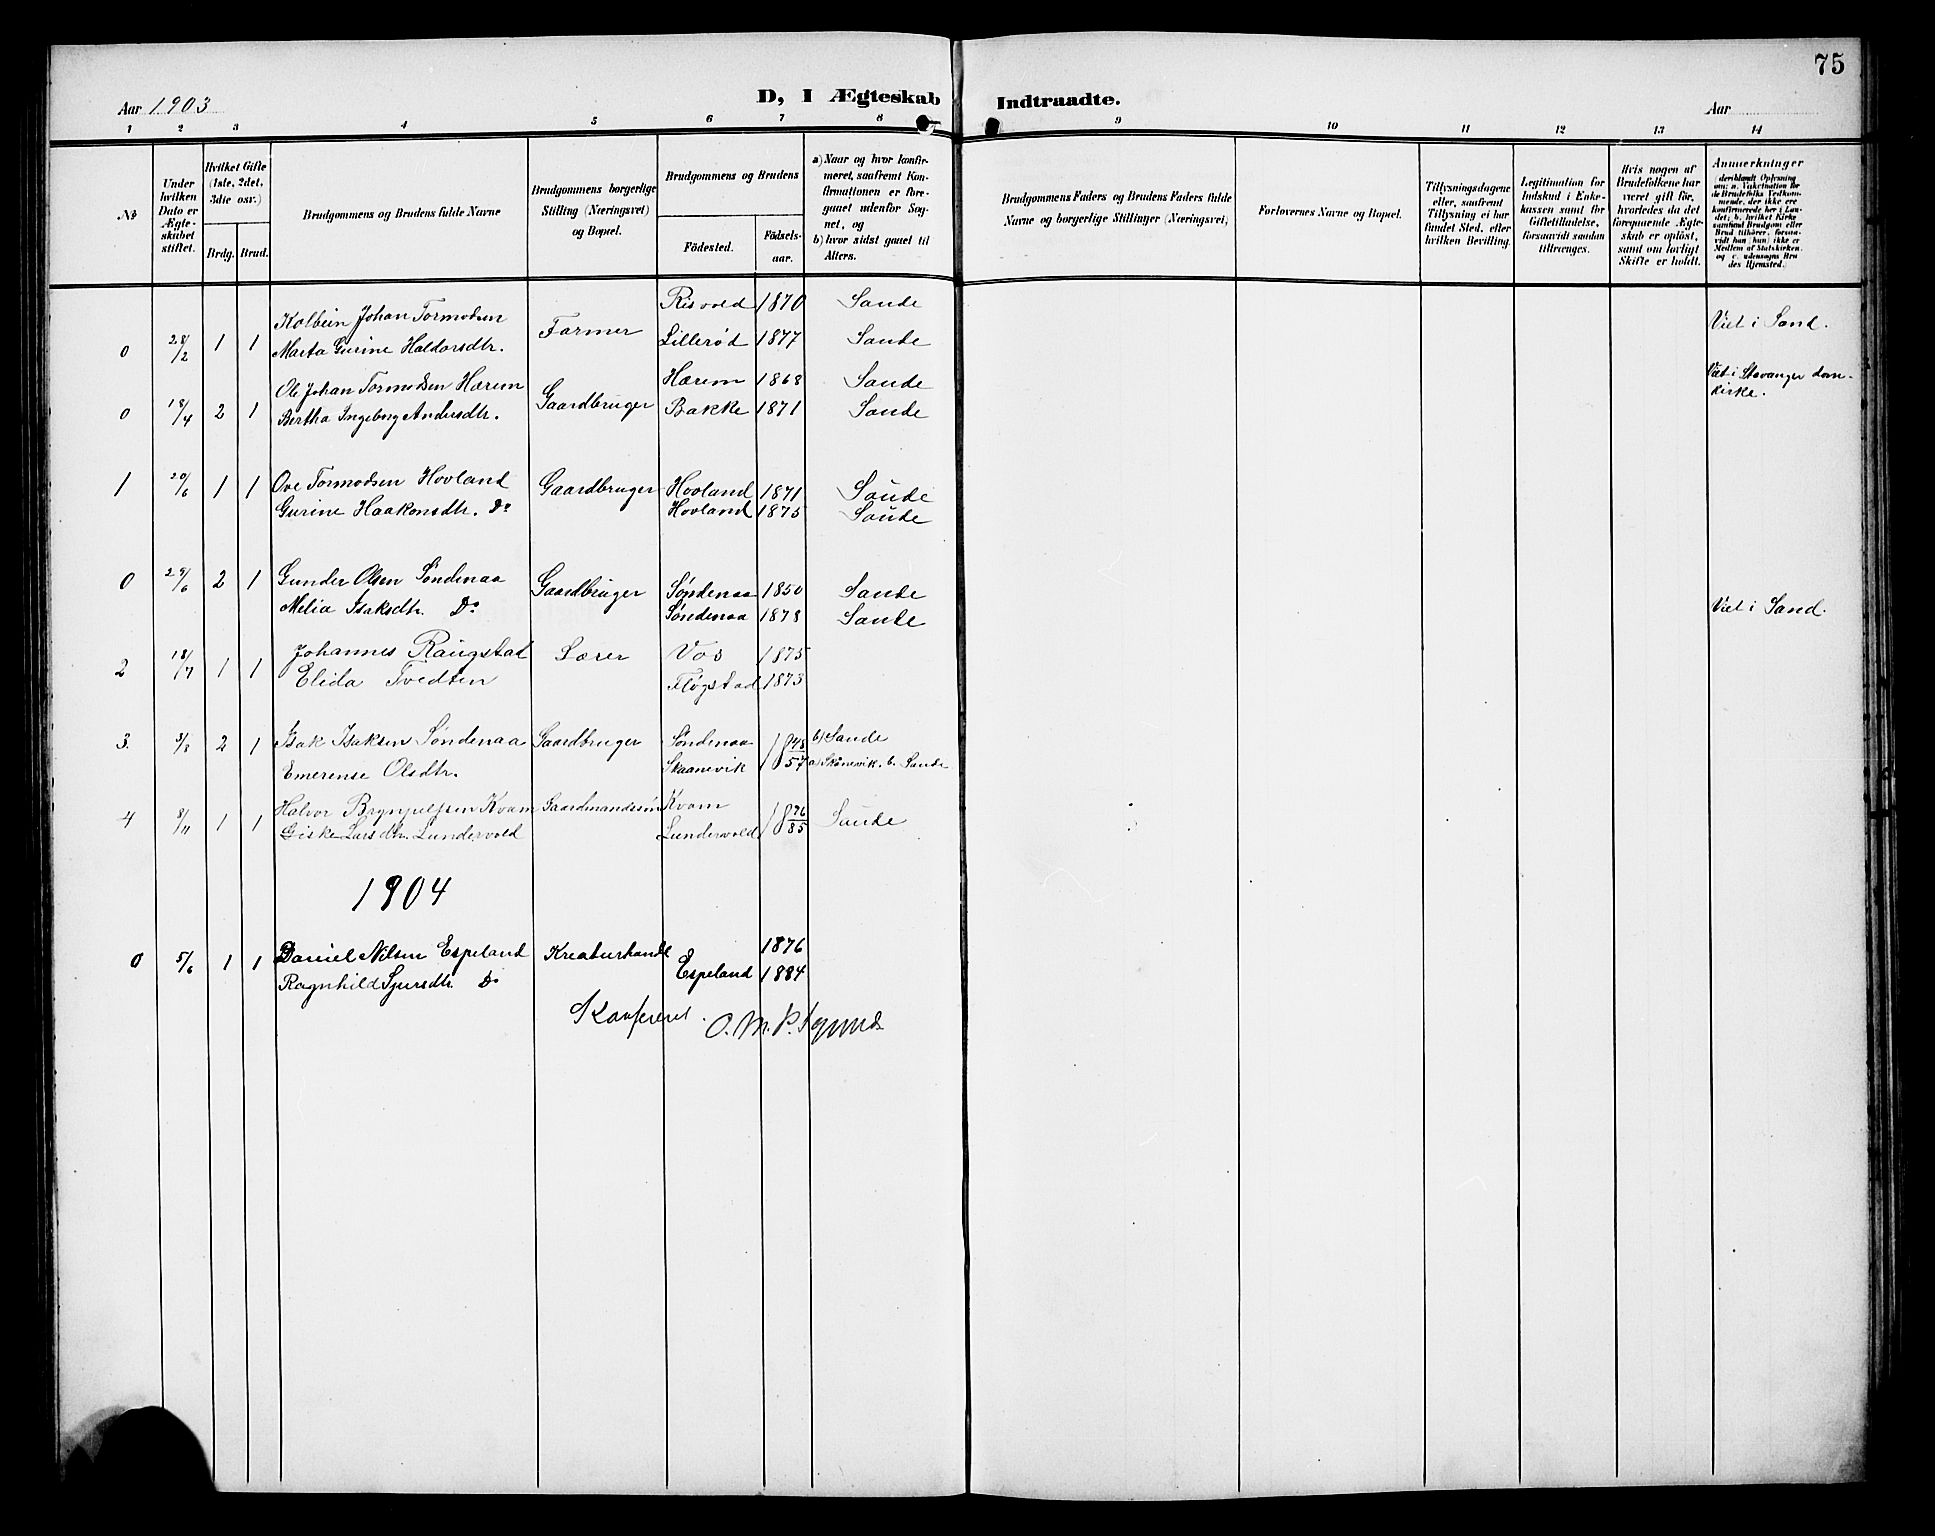 75
Aar 1903
D, I Ægteskab Indtraadte.
Aar
1 2 3 4 5 6 7 8 9 10 11 12 13 14
No
Under hvilken Dato er Ægteskabet stiftet.
Hvilket Gifte (1ste, 2det, 3die osv.)
Brdg. Brud.
Brudgommens og Brudens fulde Navne
Brudgommens borgerlige Stilling (Næringsvei) og Bopæl.
Brudgommens og Brudens
Födested.
Födsels-aar.
a) Naar og hvor konfirmeret, saafremt Konfirmationen er foregaaet udenfor Sognet, og
b) hvor sidst gaaet til Alters.
Brudgommens Faders og Brudens Faders fulde Navne og borgerlige Stillinger (Næringsvei,
Forlovernes Navne og Bopæl.
Tillysningsdagene eller, saafremt Tillysning ei har fundet Sted, efter hvilken Bevilling.
Legitimation for Indskud i Enkekassen samt for Giftetilladelse, forsaavidt saadan tiltrænges.
Hvis nogen af Brudefolkene har været gift för, hvorledes da det foregaaende Ægteskab er oplöst, samt om lovligt Skifte er holdt.
Anmerkninger
(deriblandt Oplysning om: a. Vakcination for de Brudefolks Vedkommende, der ikke ere konfirmerede her i Landet; b. hvilket Kirkesamfund Brudgom eller Brud tilhörer, forsaavidt han (hun) ikke er Medlem af Statskirken, og c. udensogns Brudes Hjemsted.)
0 28/2 1 1 Kolbein Johan Tormodsen Farmer Risvold 1870 Sande Viet i Sand.
Marta Gurine Haldorsdtr. Lillerød 1877 Sande
0 18/4 2 1 Ole Johan Tormodsen Hærem Gaardbruger Hærem 1868 Sande Viet i Stavanger dom-
Bertha Ingeborg Andersdtr. Bakke 1871 Sande kirke.
1 20/6 1 1 Ove Tormodsen Hovland Gaardbruger Hovland 1871 Saude
Gurine Haakonsdtr. Do Hovland 1875 Saude
0 29/6 2 1 Gunder Olsen Söndenaa Gaardbruger Søndenaa 1850 Sande
Melia Isaksdtr. Do Søndenaa 1878 Sande Viet i Sand.
2 18/7 1 1 Johannes Raugstad Lærer Vos 1875
Elida Tvedten Fløgstad 1873
3. 3/8 2 1 Isak Isaksen Søndenaa Gaardbruger Søndenaa 1848 b) Sande
Emerense Olsdtr. Skaanevik 57 a) Skånevik. b. Sande
4 8/11 1 1 Halvor Brynjulfsen Kvam Gaardmandssøn Kvam 1876 Saude
Giske Larsdtr. Lundervold Lundervold 85
1904
0 5/6 1 1 Daniel Nilsen Espeland Kreaturhandl 1876
Ragnhild Sjursdtr. Do Espeland 1884
Konfereret. O. M. P.